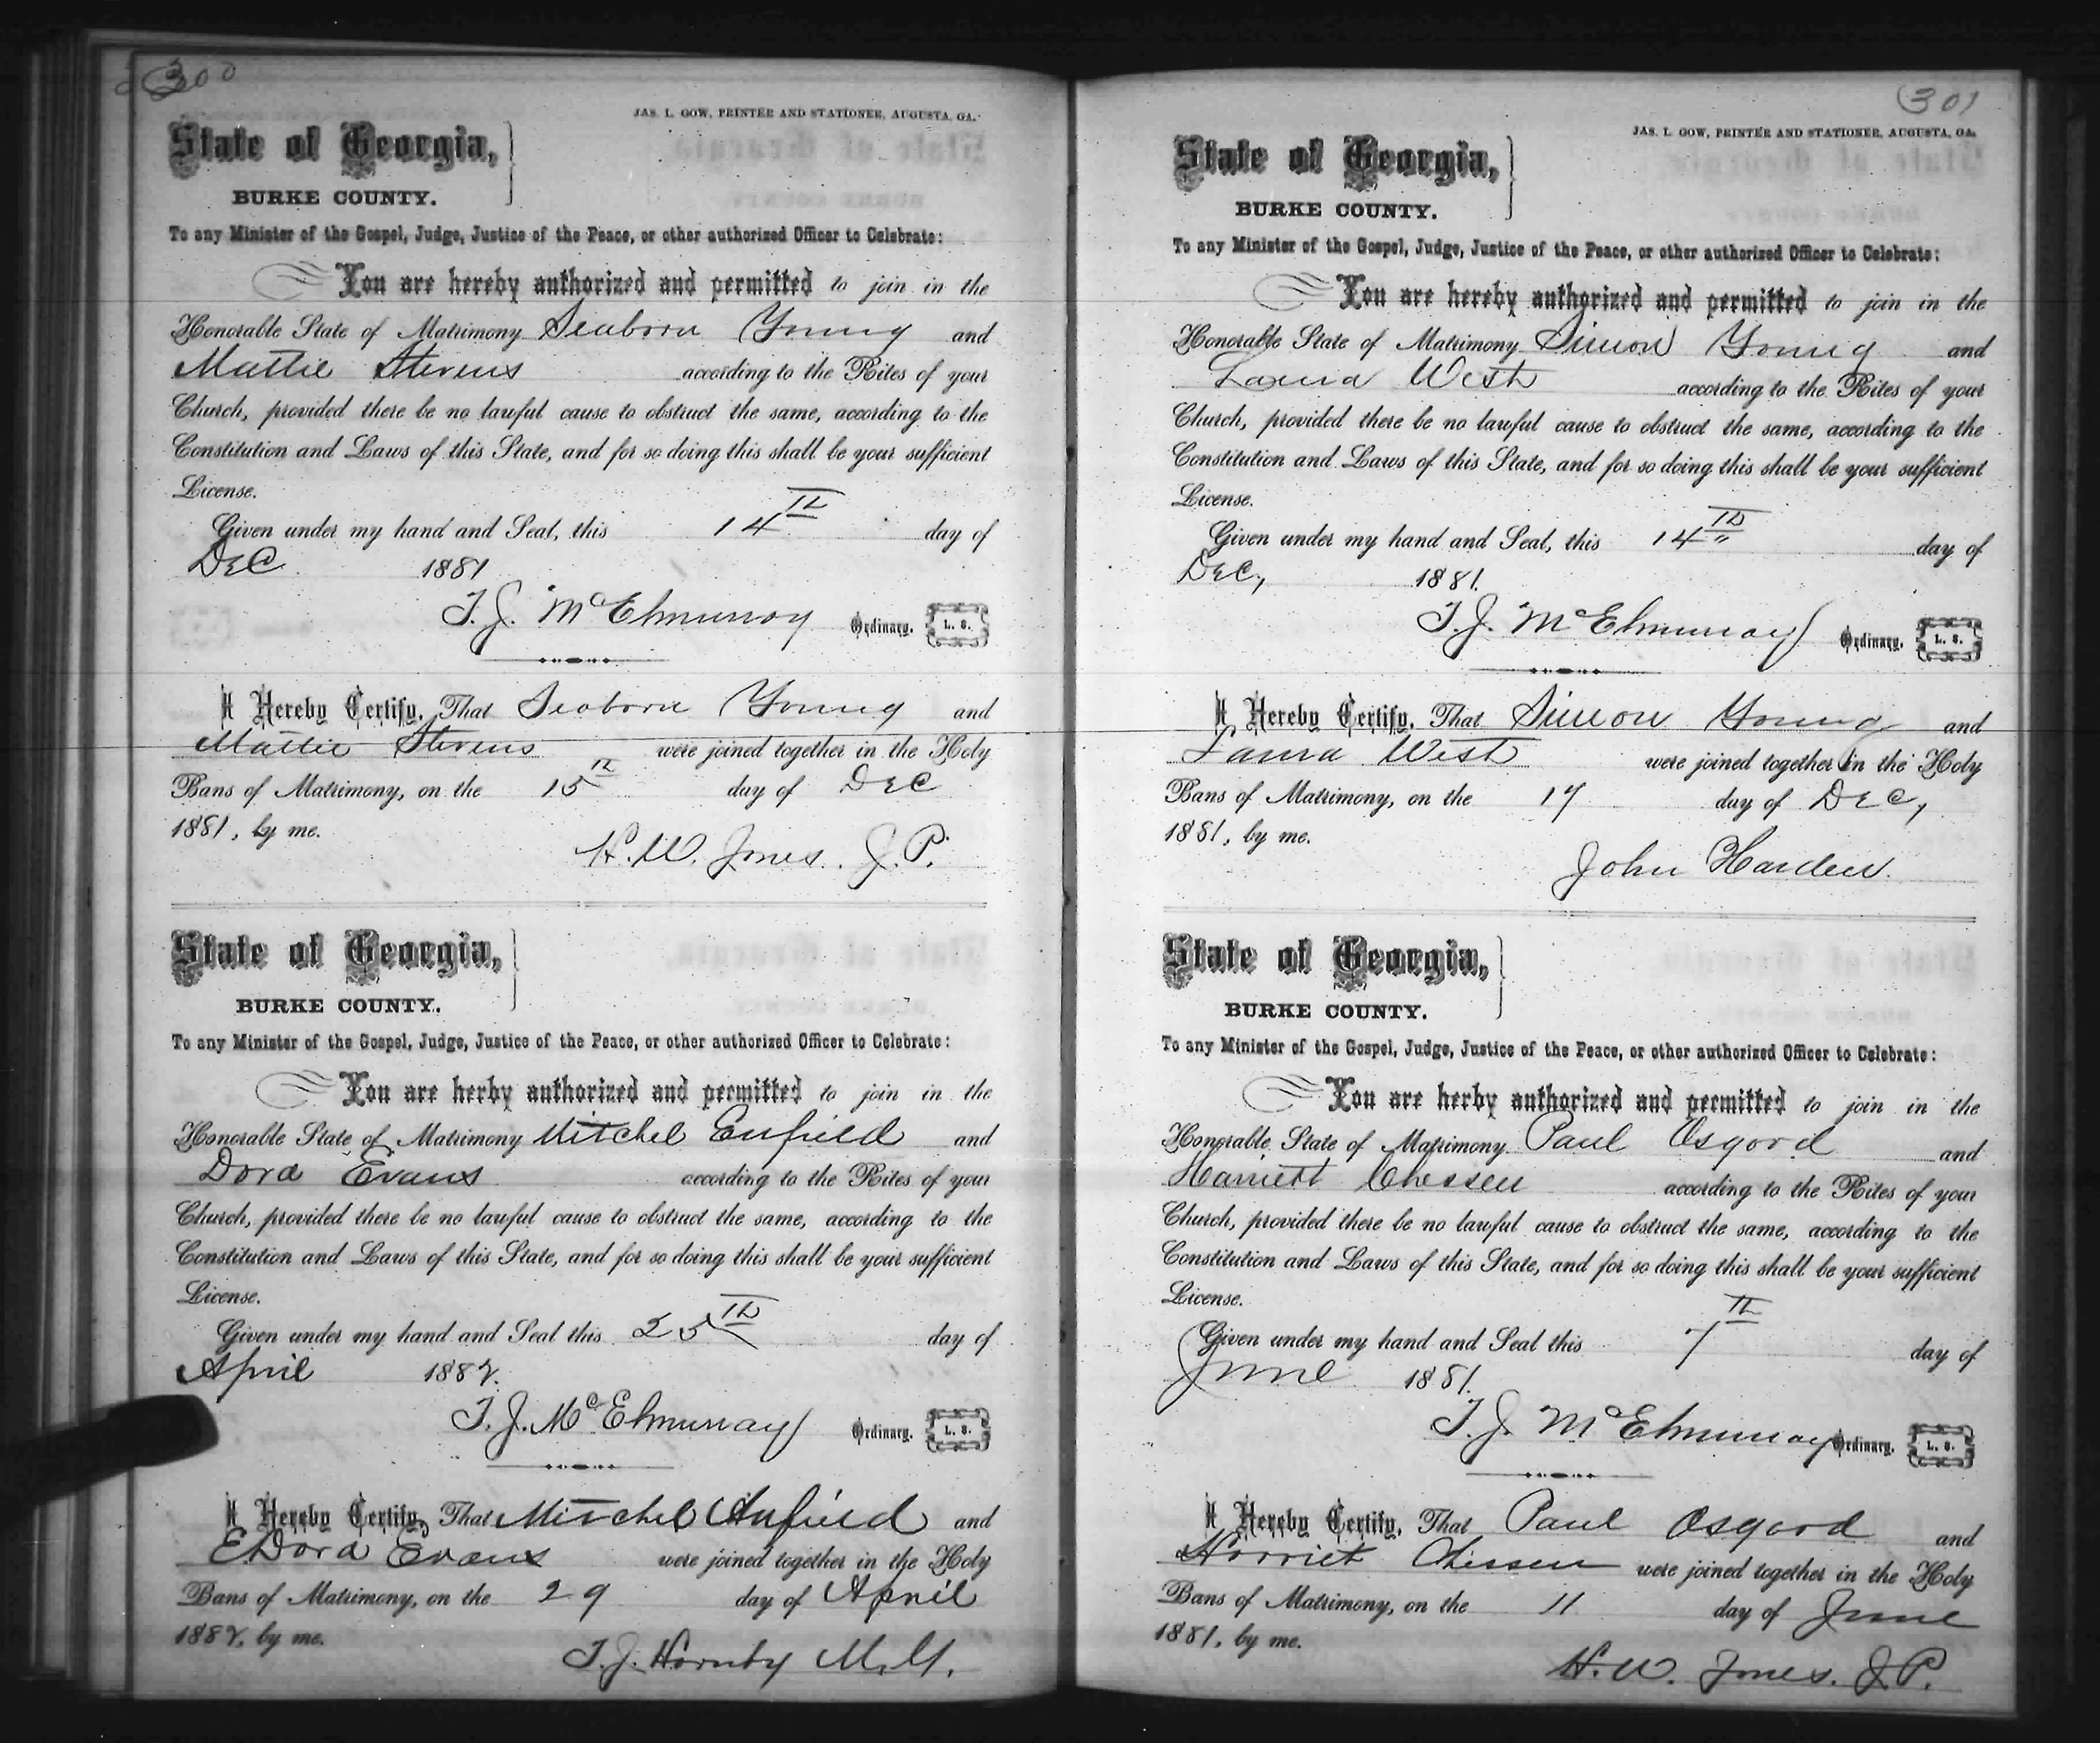 300
JAS. L. GOW, PRINTER AND STATIONER, AUGUSTA, GA.
State of Georgia,
BURKE COUNTY.
To any Minister of the Gospel, Judge, Justice of the Peace, or other authorized Officer to Celebrate:
You are hereby authorized and permitted to join in the
Honorable State of Matrimony Seaborn Young and
Mattie Stevens according to the Rites of your
Church, provided there be no lawful cause to obstruct the same, according to the
Constitution and Laws of this State, and for so doing this shall be your sufficient
License.
Given under my hand and Seal, this 14th day of
Dec 1881
T. J. McElmurray Ordinary. L. S.
I Hereby Certify, That Seaborn Young and
Mattie Stevens were joined together in the Holy
Bans of Matrimony, on the 15th day of Dec
1881, by me.
H. W. Jones. J. P.
State of Georgia,
BURKE COUNTY.
To any Minister of the Gospel, Judge, Justice of the Peace, or other authorized Officer to Celebrate:
You are herby authorized and permitted to join in the
Honorable State of Matrimony Mitchel Enfield and
Dora Evans according to the Rites of your
Church, provided there be no lawful cause to obstruct the same, according to the
Constitution and Laws of this State, and for so doing this shall be your sufficient
License.
Given under my hand and Seal this 25th day of
April 1882.
T. J. McElmurray Ordinary. L. S.
I Hereby Certify, That Mitchel Anfield and
EDora Evans were joined together in the Holy
Bans of Matrimony, on the 29 day of April
1882, by me.
T. J. Hornby M. G.
301
JAS. L. GOW, PRINTER AND STATIONER, AUGUSTA, GA.
State of Georgia,
BURKE COUNTY.
To any Minister of the Gospel, Judge, Justice of the Peace, or other authorized Officer to Celebrate:
You are hereby authorized and permitted to join in the
Honorable State of Matrimony Simon Young and
Laura West according to the Rites of your
Church, provided there be no lawful cause to obstruct the same, according to the
Constitution and Laws of this State, and for so doing this shall be your sufficient
License.
Given under my hand and Seal, this 14th day of
Dec, 1881.
T. J. McElmurray Ordinary. L. S.
I Hereby Certify, That Simon Young and
Laura West were joined together in the Holy
Bans of Matrimony, on the 17 day of Dec,
1881, by me.
John Harden.
State of Georgia,
BURKE COUNTY.
To any Minister of the Gospel, Judge, Justice of the Peace, or other authorized Officer to Celebrate:
You are herby authorized and permitted to join in the
Honorable State of Matrimony Paul Osgood and
Harriett Chessen according to the Rites of your
Church, provided there be no lawful cause to obstruct the same, according to the
Constitution and Laws of this State, and for so doing this shall be your sufficient
License.
Given under my hand and Seal this 7th day of
June 1881.
T. J. McElmurray Ordinary. L. S.
I Hereby Certify, That Paul Osgood and
Harriet Chissen were joined together in the Holy
Bans of Matrimony, on the 11 day of June
1881, by me.
H. W. Jones. J. P.